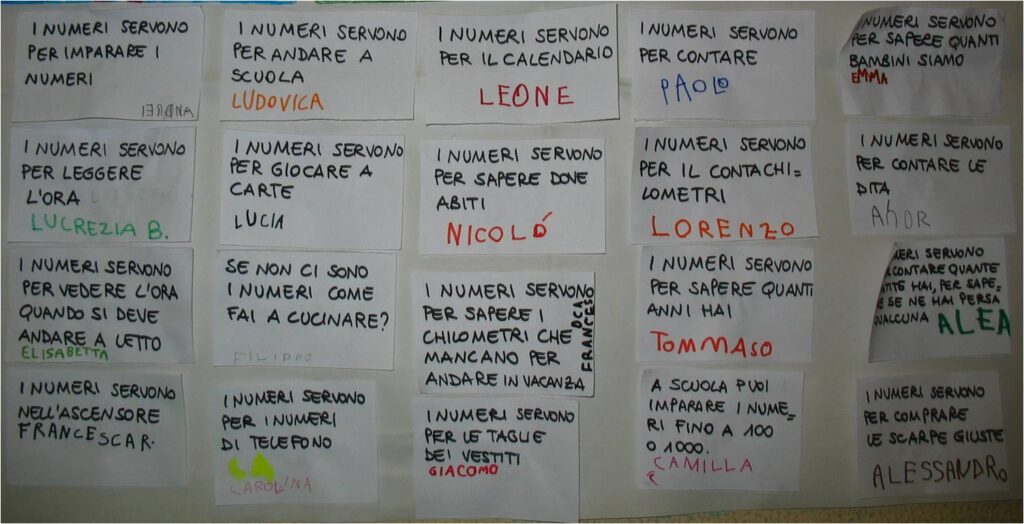 I NUMERI SERVONO
PER IMPARARE I
NUMERI
ANDREI
I NUMERI SERVONO
PER ANDARE A
SCUOLA
LUDOVICA
I NUMERI SERVONO
PER IL CALENDARIO
LEONE
I NUMERI SERVONO
PER CONTARE
PAOLO
I NUMERI SERVONO
PER SAPERE QUANTI
BAMBINI SIAMO
EMMA
I NUMERI SERVONO
PER LEGGERE
L'ORA
LUCREZIA B.
I NUMERI SERVONO
PER GIOCARE A
CARTE
LUCIA
I NUMERI SERVONO
PER SAPERE DOVE
ABITI
NICOLÓ
I NUMERI SERVONO
PER IL CONTACHI-
LOMETRI
LORENZO
I NUMERI SERVONO
PER CONTARE LE
DITA
I NUMERI SERVONO
PER VEDERE L'ORA
QUANDO SI DEVE
ANDARE A LETTO
ELISABETTA
SE NON CI SONO
I NUMERI COME
FAI A CUCINARE?
FILIPPO
I NUMERI SERVONO
PER SAPERE I
CHILOMETRI CHE
MANCANO PER
ANDARE IN VACANZA
FRANCESCO
I NUMERI SERVONO
PER SAPERE QUANTI
ANNI HAI
TOMMASO
SERVONO
CONTARE QUANTE
HAI, PER SAPE=
SE NE HAI PERSA
QUALCUNA ALEA
I NUMERI SERVONO
NELL'ASCENSORE
FRANCESCA R.
I NUMERI SERVONO
PER I NUMERI
DI TELEFONO
CAROLINA
I NUMERI SERVONO
PER LE TAGLIE
DEI VESTITI
GIACOMO
A SCUOLA PUOI
IMPARARE I NUME=
RI FINO A 100
O 1000.
CAMILLA
I NUMERI SERVONO
PER COMPRARE
LE SCARPE GIUSTE
ALESSANDRO